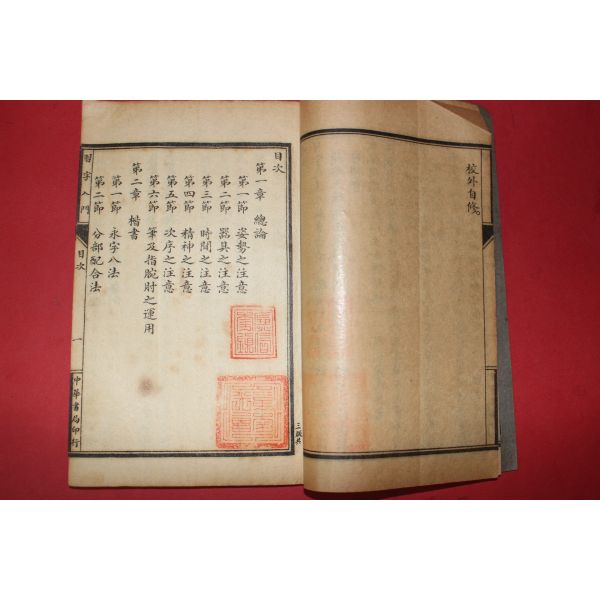 校外自修。
目次
第一章 總論
第一節 姿勢之注意
第二節 器具之注意
第三節 時間之注意
第四節 精神之注意
第五節 次序之注意
第六節 筆及指腕肘之運用
第二章 楷書
第一節 永字八法
第二節 分部配合法
習字入門
目次
一
中華書局印行